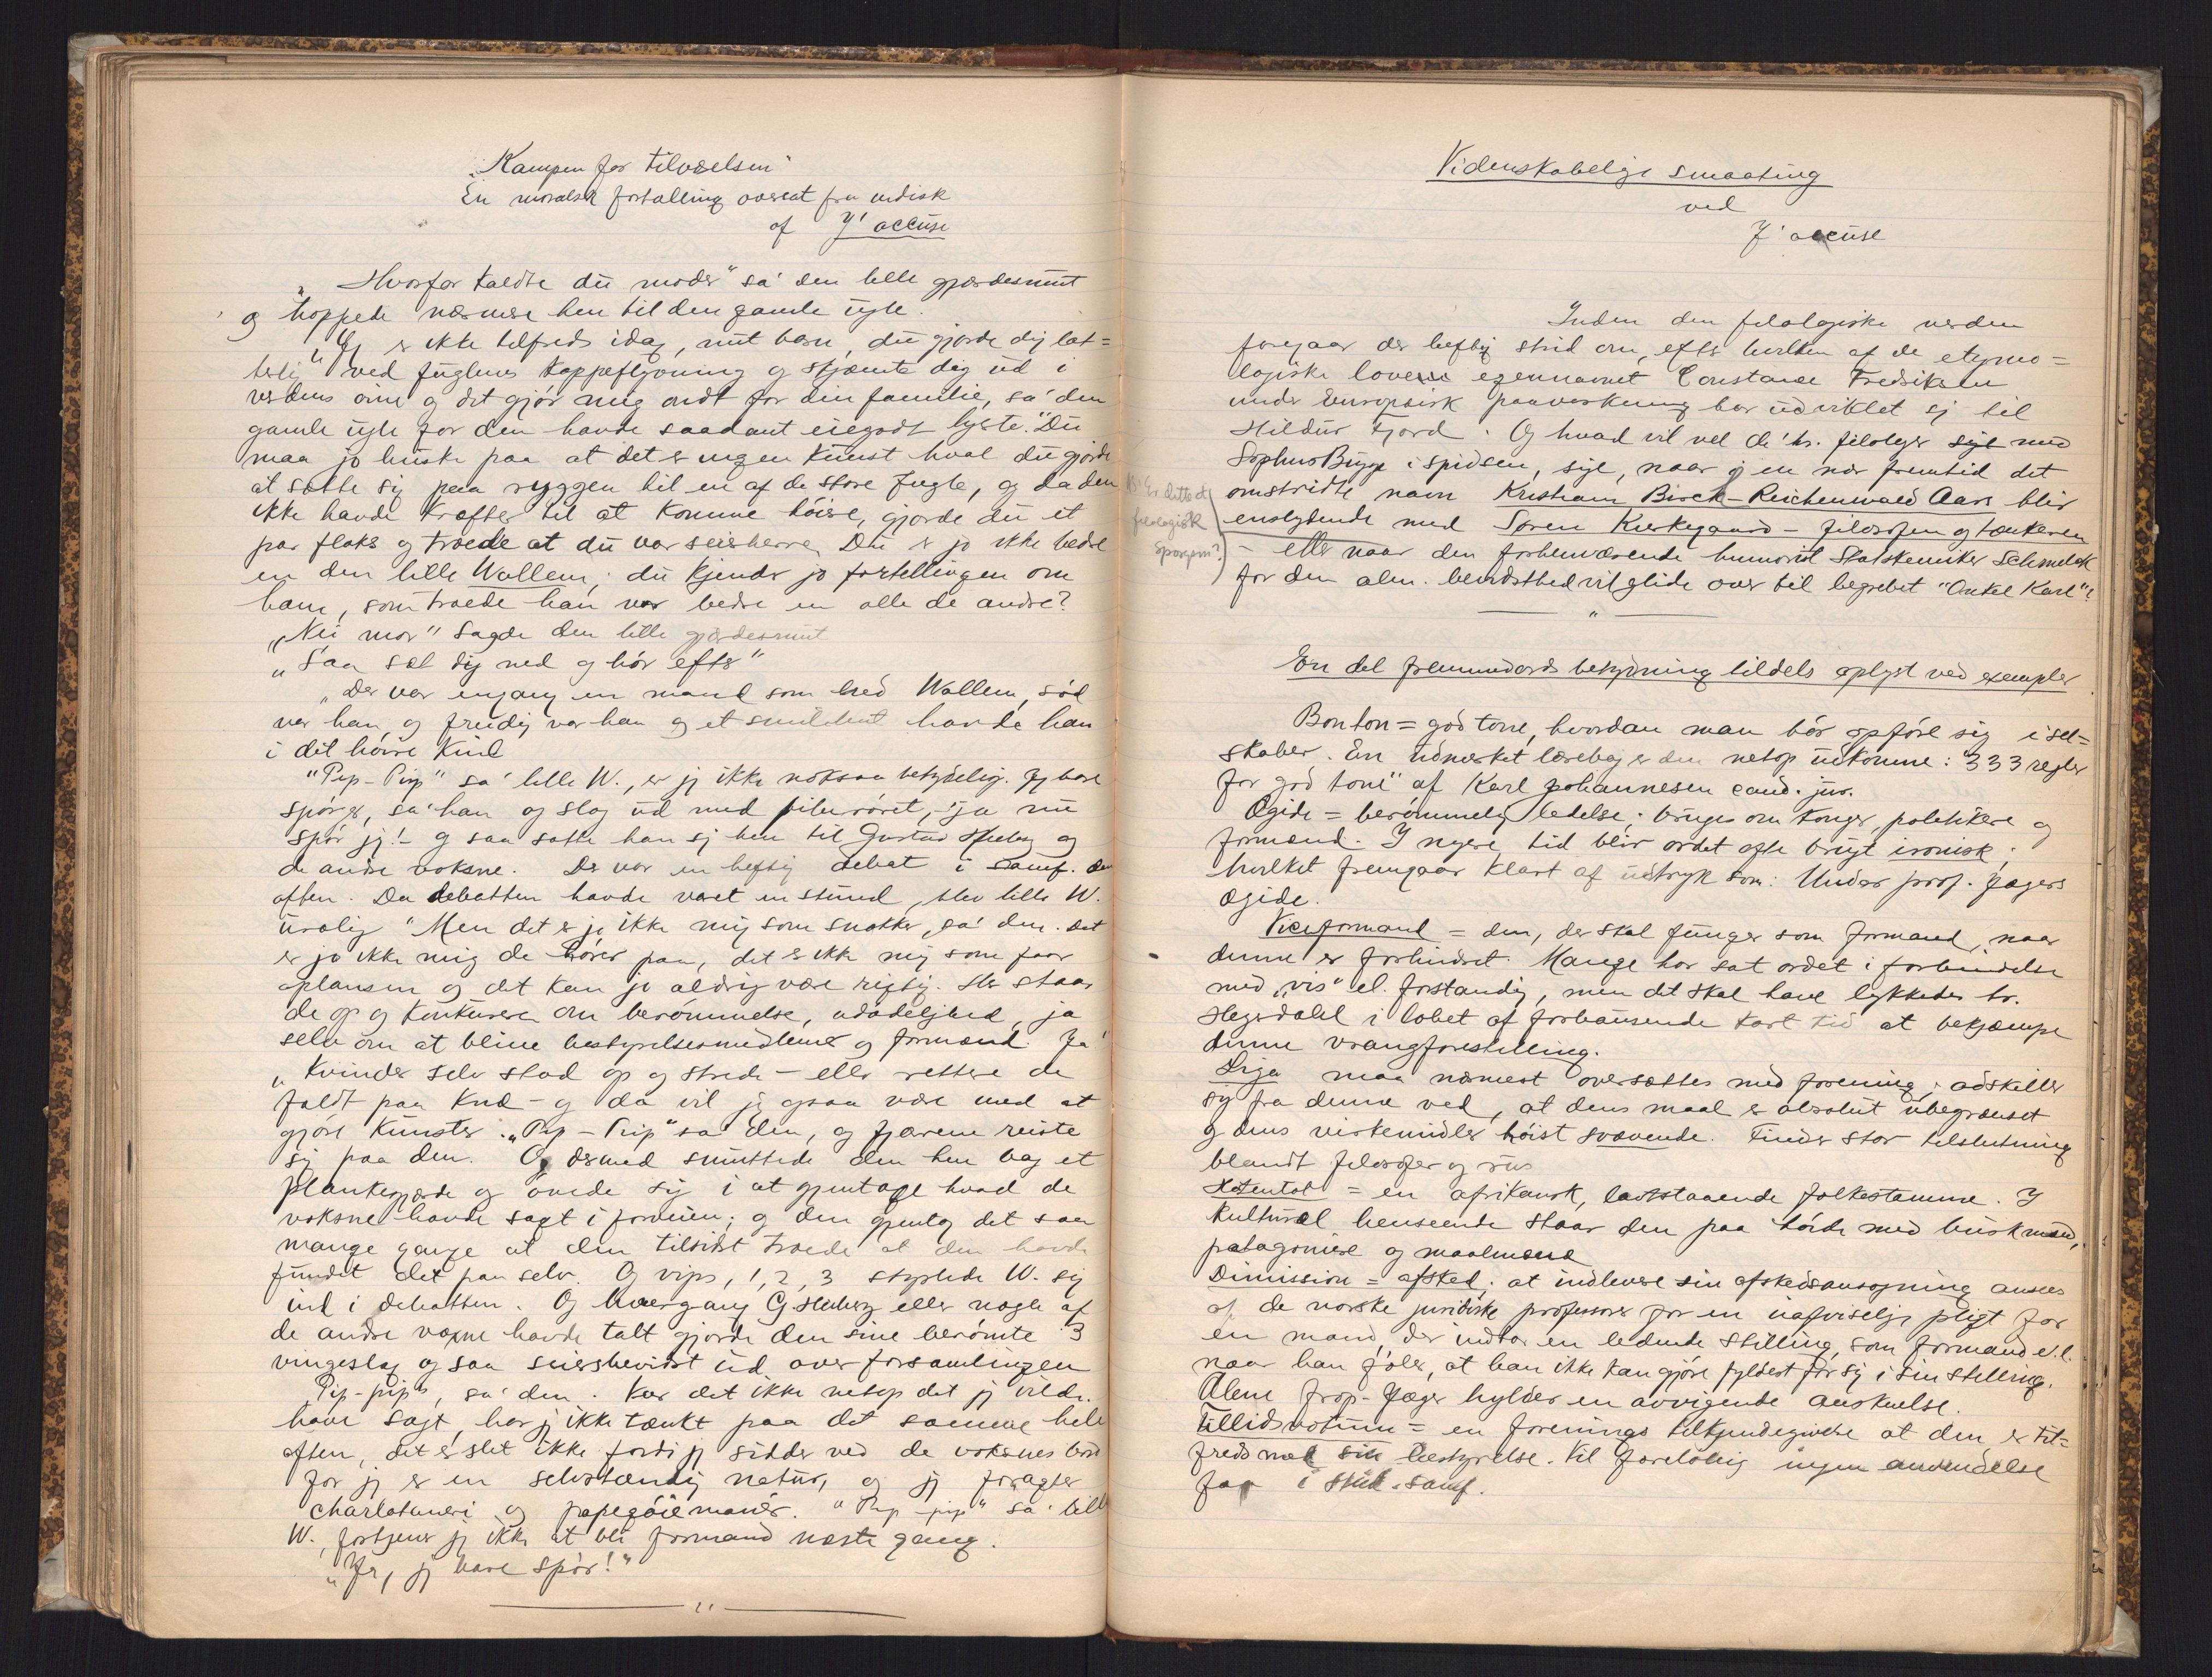 "Kampen for tilværelsen"
En moralsk fortælling oversat fra indisk
af J'accuse
"Hvorfor kaldte du moder" sa' den lille gjærdesmut
og hoppede nærmere hen til den gamle ugle.
"Jeg er ikke tilfreds idag, mit barn, du gjorde dig lat=
terlig ved fuglenes kappeflyvning og skjæmte dig ud i
verdens øine og det gjør mig ondt for din familie, sa' den
gamle ugle for den havde saadant eiegodt hjerte. "Du
maa jo huske paa at det er ingen kunst hvad du gjorde
at sætte sig paa ryggen til en af de store fugle, og da den
ikke havde kræfter til at komme høiere, gjorde du et
par flaks og troede at du var seierherre. Du er jo ikke bedre
en den lille Wallem; du kjender jo fortellingen om
ham, som troede han var bedre en alle de andre?
"Nei mor" sagde den lille gjærdesmut
"Saa sæt dig ned og hør efter"
"Der var engang en mand som hed Wallem, sød
var han, og freidig var han og et smilehul havde han
i det høire kind
"Pip-Pip" sa' lille W., er jeg ikke noksaa betydelig. Jeg bare
spørger, sa' han og slog ud med piberøret, "ja nu
spør jeg! - og saa satte han sig hen til Gustav Heiberg og
de andre voksne. Der var en heftig debat i Samf. den
aften. Da debatten havde varet en stund, blev lille W.
urolig "Men det er jo ikke mig som snakker, sa' den. Det
er jo ikke mig de hører paa, det er ikke mig som faar
aplausen og det kan jo aldrig være rigtig. Her staar
de op og konkurerer om berømmelse, udødelighed, ja
selv om at blive bestyrelsesmedlemer og formænd. Ja!
"Kvinder selv stod op og strede - eller rettere de
faldt paa knæ - og da vil jeg ogsaa være med at
gjøre kunster. "Pip-Pip" sa' den, og fjærene reiste
sig paa den. Og dermed smuttede den hen bag et
plankegjærde og øvede sig i at gjentage hvad de
voksne havde sagt i forveien; og den gjentog det saa
mange gange at den tilsidst troede at den havde
fundet det paa selv. Og vips, 1, 2, 3 styrtede W. sig
ind i debatten. Og hvergang G. Heiberg eller nogle af
de andre voxne havde talt gjorde den sine berømte 3
vingeslag og saa seiersbevidst ud over forsamlingen
"Pip-pip", sa' den. Var det ikke netop det jeg vilde
have sagt, har jeg ikke tænkt paa det samme hele
aften, det er slet ikke fordi jeg sidder ved de voksnes bord
for jeg er en selvstændig natur, og jeg foragter
charlataneri og papegøiemanér. "Pip-pip" sa' lille
W., fortjener jeg ikke at bli formand næste gang.
"Ja, jeg bare spør!"
Videnskabelige smaating
ved
J'accuse
Inden den filologiske verden
foregaar der heftig strid om, efter hvilken af de etymo=
logiske lovene egennavnet Constance Fredriksen
under Europæisk paavirkning har udviklet sig til
Hildur Fjord. Og hvad vil vel d'hr. filologer sige med
Sophus Bugge i spidsen, sige, naar i en nær fremtid det
omstridte navn Kristian Birch-Reichenwald Aars blir
enslydende med Søren Kierkegaard - filosofen og tænkeren
- eller naar den forhenværende humorist Statskemiker Schmelck
for den alm. bevidsthed vil glide over til begrebet "Onkel Karl"?
Er dette et
filologisk
spørgsm?
En del fremmedords betydning tildels oplyst ved exempler
Bonton = god tone, hvordan man bør opføre sig i sel=
skaber. En udmerket lærebog er den netop udkomne: "333 regler
for god tone" af Karl Johannesen cand. jur.
Ægide = berømmelig ledelse; bruges om konger, politikere og
formænd. I nyere tid blir ordet ofte brugt ironisk;
hvilket fremgaar klart af udtryk som: Under prof. Jægers
ægide.
Viceformand = den, der skal fungere som formand, naar
denne er forhindret. Mange har sat ordet i forbindelse
med "vis" el. forstandig, men det skal have lykkedes hr.
Hegerdahl i løbet af forbausende kort tid at bekjæmpe
denne vrangforestilling.
Liga maa nærmest oversættes med forening; adskiller
sig fra denne ved, at dens maal er absolut ubegrænset
og dens virkemidler høist svævende. Finder stor tilslutning
blandt filosofer og rus
Hotentot = en afrikansk, lavtstaaende folkestamme. I
kulturel henseende staar den paa høide med buskmænd,
patagoniere og maalmænd
Dimission = afsked; at indlevere sin afskedsansøgning ansees
af de norske juridiske professorer for en uafviselig pligt for
en mand, der indtar en ledende stilling, som formand e.l.
naar han føler, at han ikke kan gjøre fyldest for sig i sin stilling.
Alene prop. Jæger hylder en avvigende anskuelse.
Tillidsvotum = en forenings tilkjendegivelse at den er til=
freds med sin bestyrelse. Vil foreløbig ingen anvendelse
faa i stud. samf.